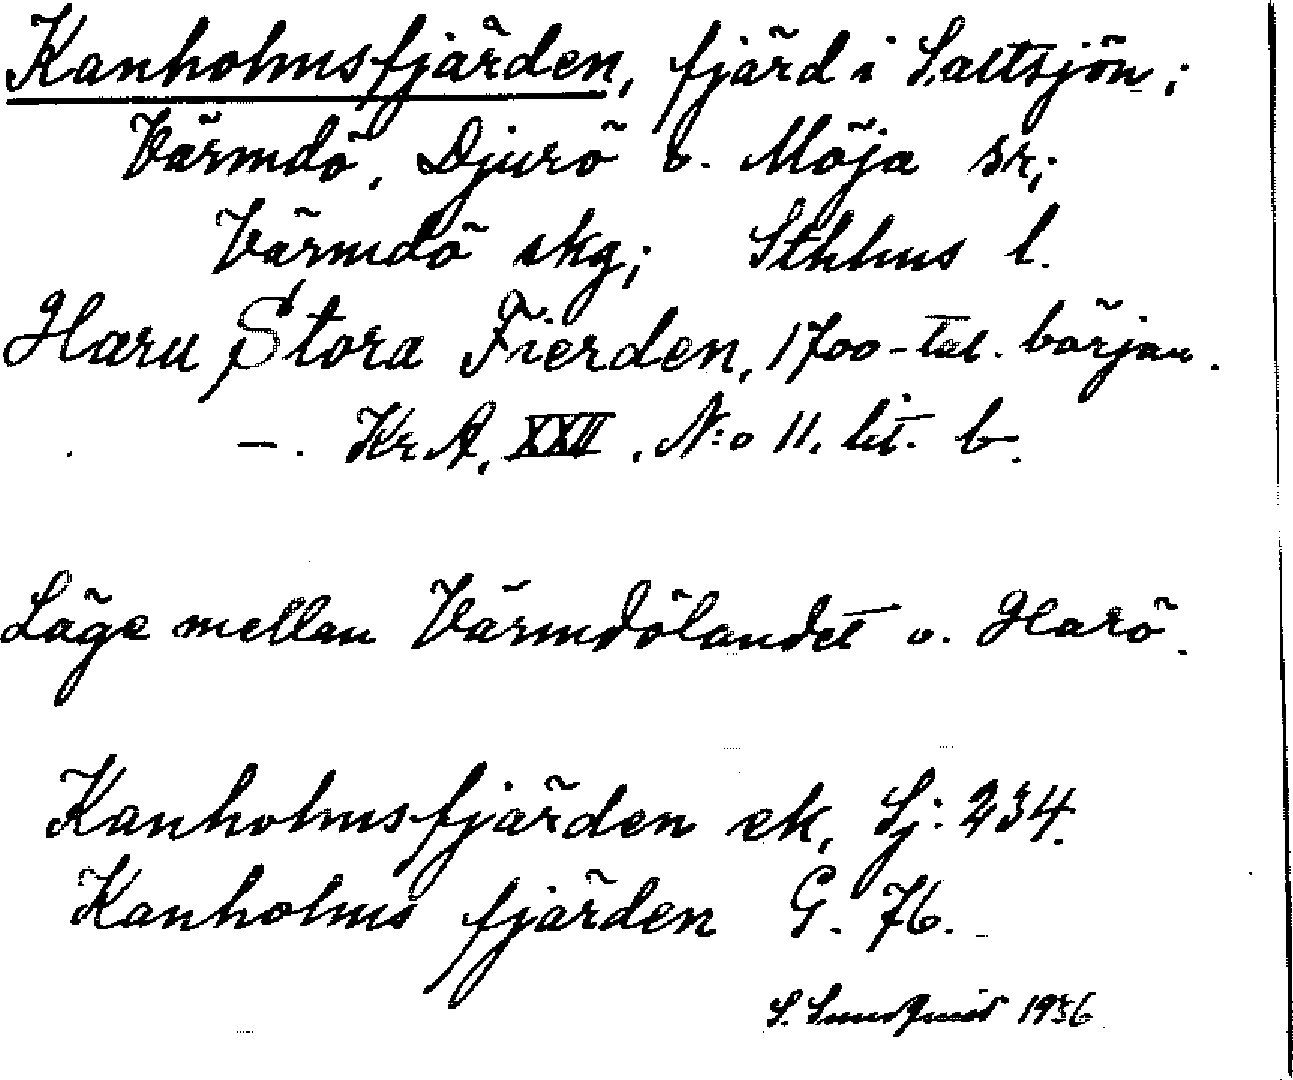 Kanholmsfjärden, fjärd i Saltsjön;
Värmdö, Djurö o. Möja sr;
Värmdö skg; Sthlms l.
Haru Stora Fierden, 1700-tal. början.
—. Kr.A. XXII. N:o 11. lit. b.
Läge mellan Värmdölandet o. Harö.
Kanholmsfjärden ek, Sj: 234.
Kanholms fjärden G. 76.
S. Sundquist 1936